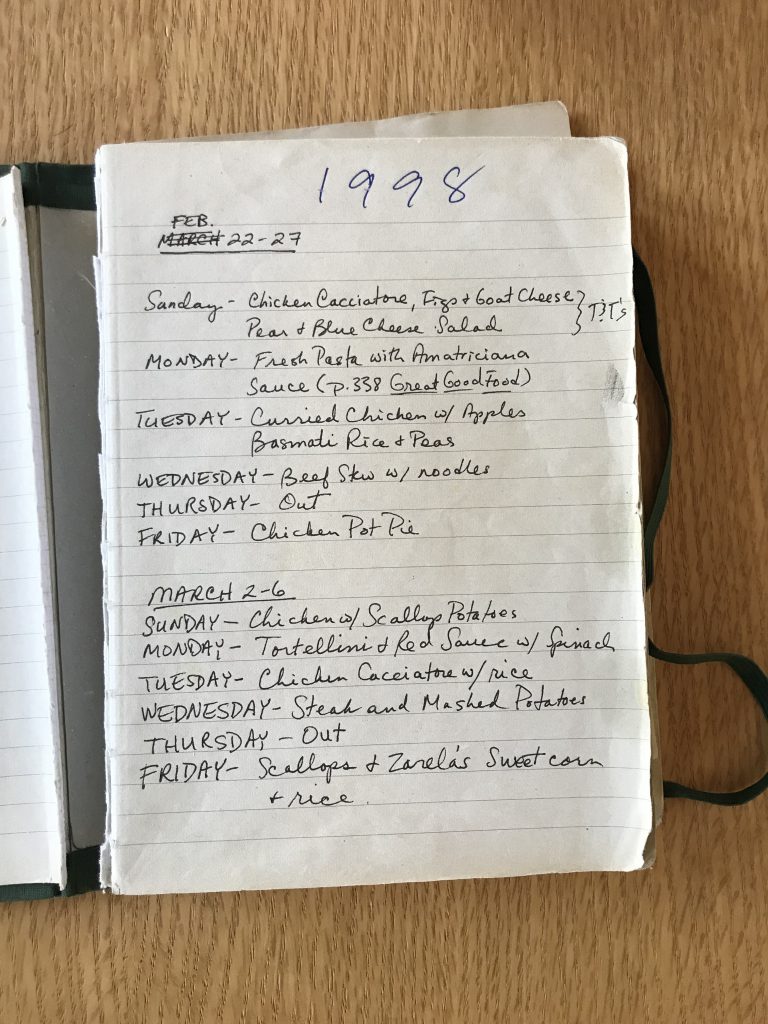 1998
FEB.
MARCH 22-27
Sunday - Chicken Cacciatore, Figs + Goat Cheese
Pear + Blue Cheese Salad } T?T's
MONDAY- Fresh Pasta with Amatriciana
Sauce (p.338 Great Good Food)
TUESDAY- Curried Chicken w/ Apples
Basmati Rice + Peas
WEDNESDAY- Beef Stew w/ noodles
THURSDAY- Out
FRIDAY- Chicken Pot Pie
MARCH 2-6
SUNDAY- Chicken w/ Scallop Potatoes
MONDAY- Tortellini + Red Sauce w/ Spinach
TUESDAY- Chicken Cacciatore w/ rice
WEDNESDAY- Steak and Mashed Potatoes
THURSDAY - Out
FRIDAY- Scallops + Zarela's Sweet corn
+ rice.